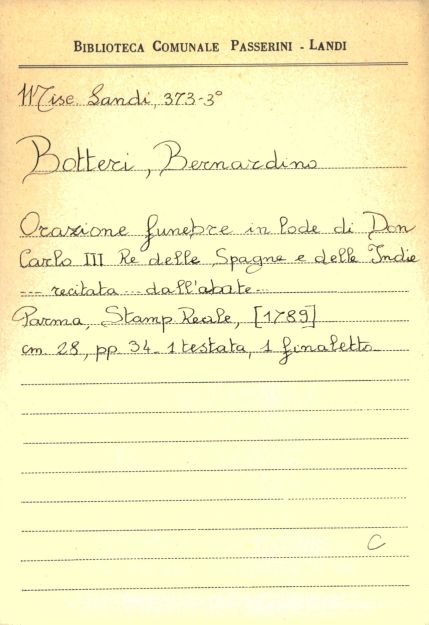 BIBLIOTECA COMUNALE PASSERINI - LANDI
Misc. Landi, 373-3°
Botteri, Bernardino
Orazione funebre in lode di Don
Carlo III Re delle Spagne e delle Indie
... recitata ... dall'abate ...
Parma, Stamp. Reale, [1789]
cm. 28, pp. 34. 1 testata, 1 finaletto
C